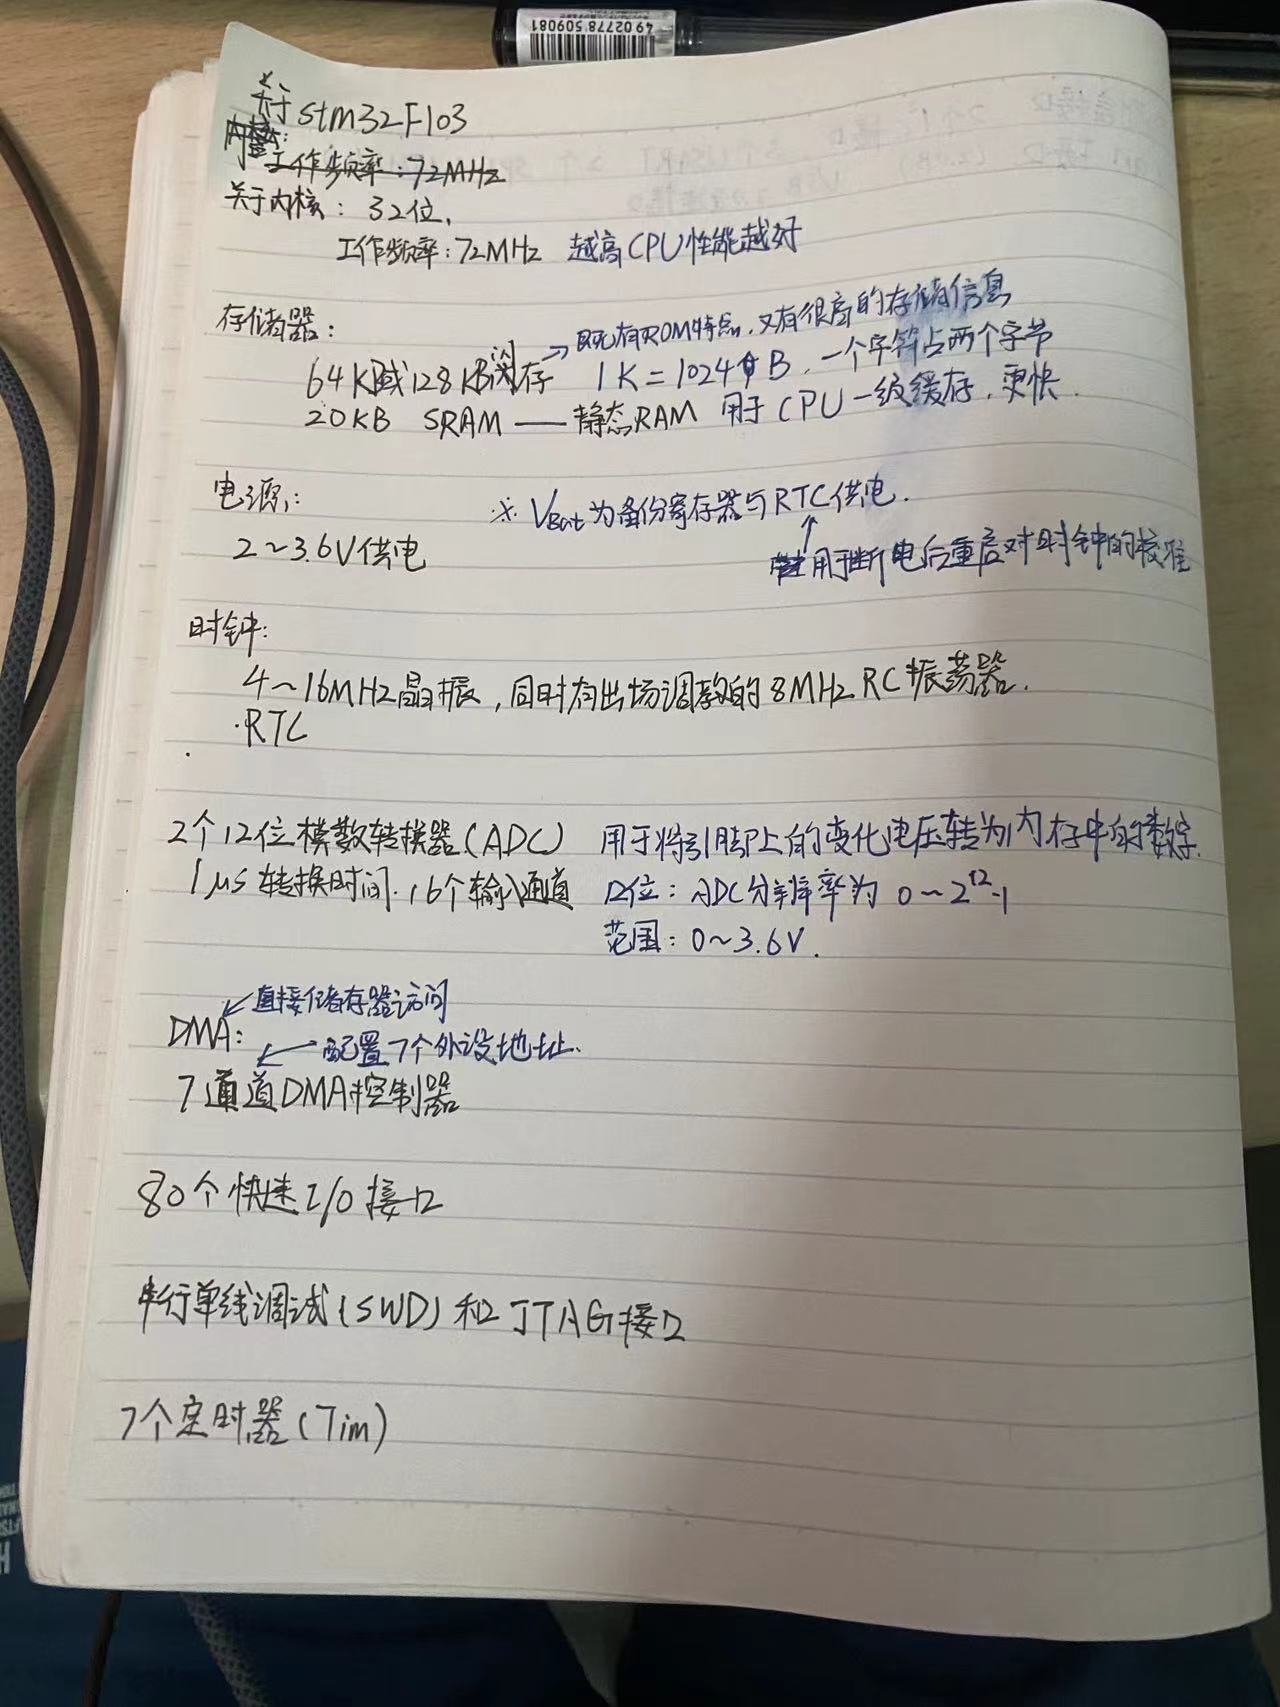 4902778 509081
关于stm32F103
内核:
工作频率:72MHz
关于内核: 32位,
工作频率:72MHz 越高CPU性能越好
存储器:
→既有ROM特点,又有很高的存储信息
64K或128KB闪存 1K=1024个B,一个字符占两个字节
20KB SRAM——静态RAM 用于CPU一级缓存,更快.
电源:
※ VBat为备份寄存器与RTC供电.
2~3.6V供电
用于断电后重启对时钟的校准
时钟:
4~16MHz晶振,同时有出场调教的8MHz RC振荡器.
·RTC
2个12位模数转换器(ADC) 用于将引脚上的变化电压转为内存中的数字.
1μs转换时间.16个输入通道 12位:ADC分辨率为 0~2^12-1
范围:0~3.6V.
直接储存器访问
DMA:
配置7个外设地址.
7通道DMA控制器
80个快速I/O接口
串行单线调试(SWD)和JTAG接口
7个定时器(Tim)